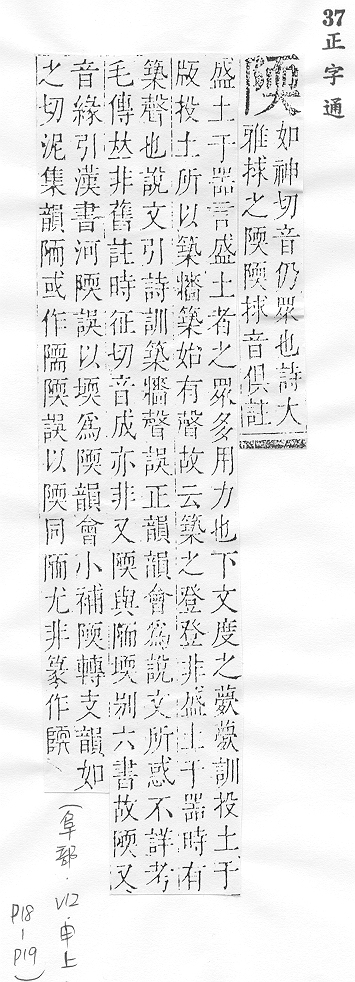 37正字通
陾
如神切音仍眾也詩大
雅捄之陾陾捄音俱註
盛土于器言盛土者之眾多用力也下文度之薨薨訓投土于
版投土所以築牆築始有聲故云築之登登非盛土于器時有
築聲也說文引詩訓築牆聲誤正韻韻會為說文所惑不詳考
毛傳𠀤非舊註時征切音成亦非又陾與陑堧別六書故陾又
音緣引漢書河陾誤以堧為陾韻會小補陾轉支韻如
之切泥集韻陑或作隭陾誤以陾同陑尤非篆作
(阜部.V12.申上.
P18-P19)